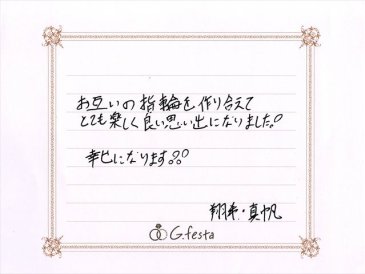 お互いの指輪を作り合えて
とても楽しく良い思い出になりました!
幸せになります!!
真帆
G.festa